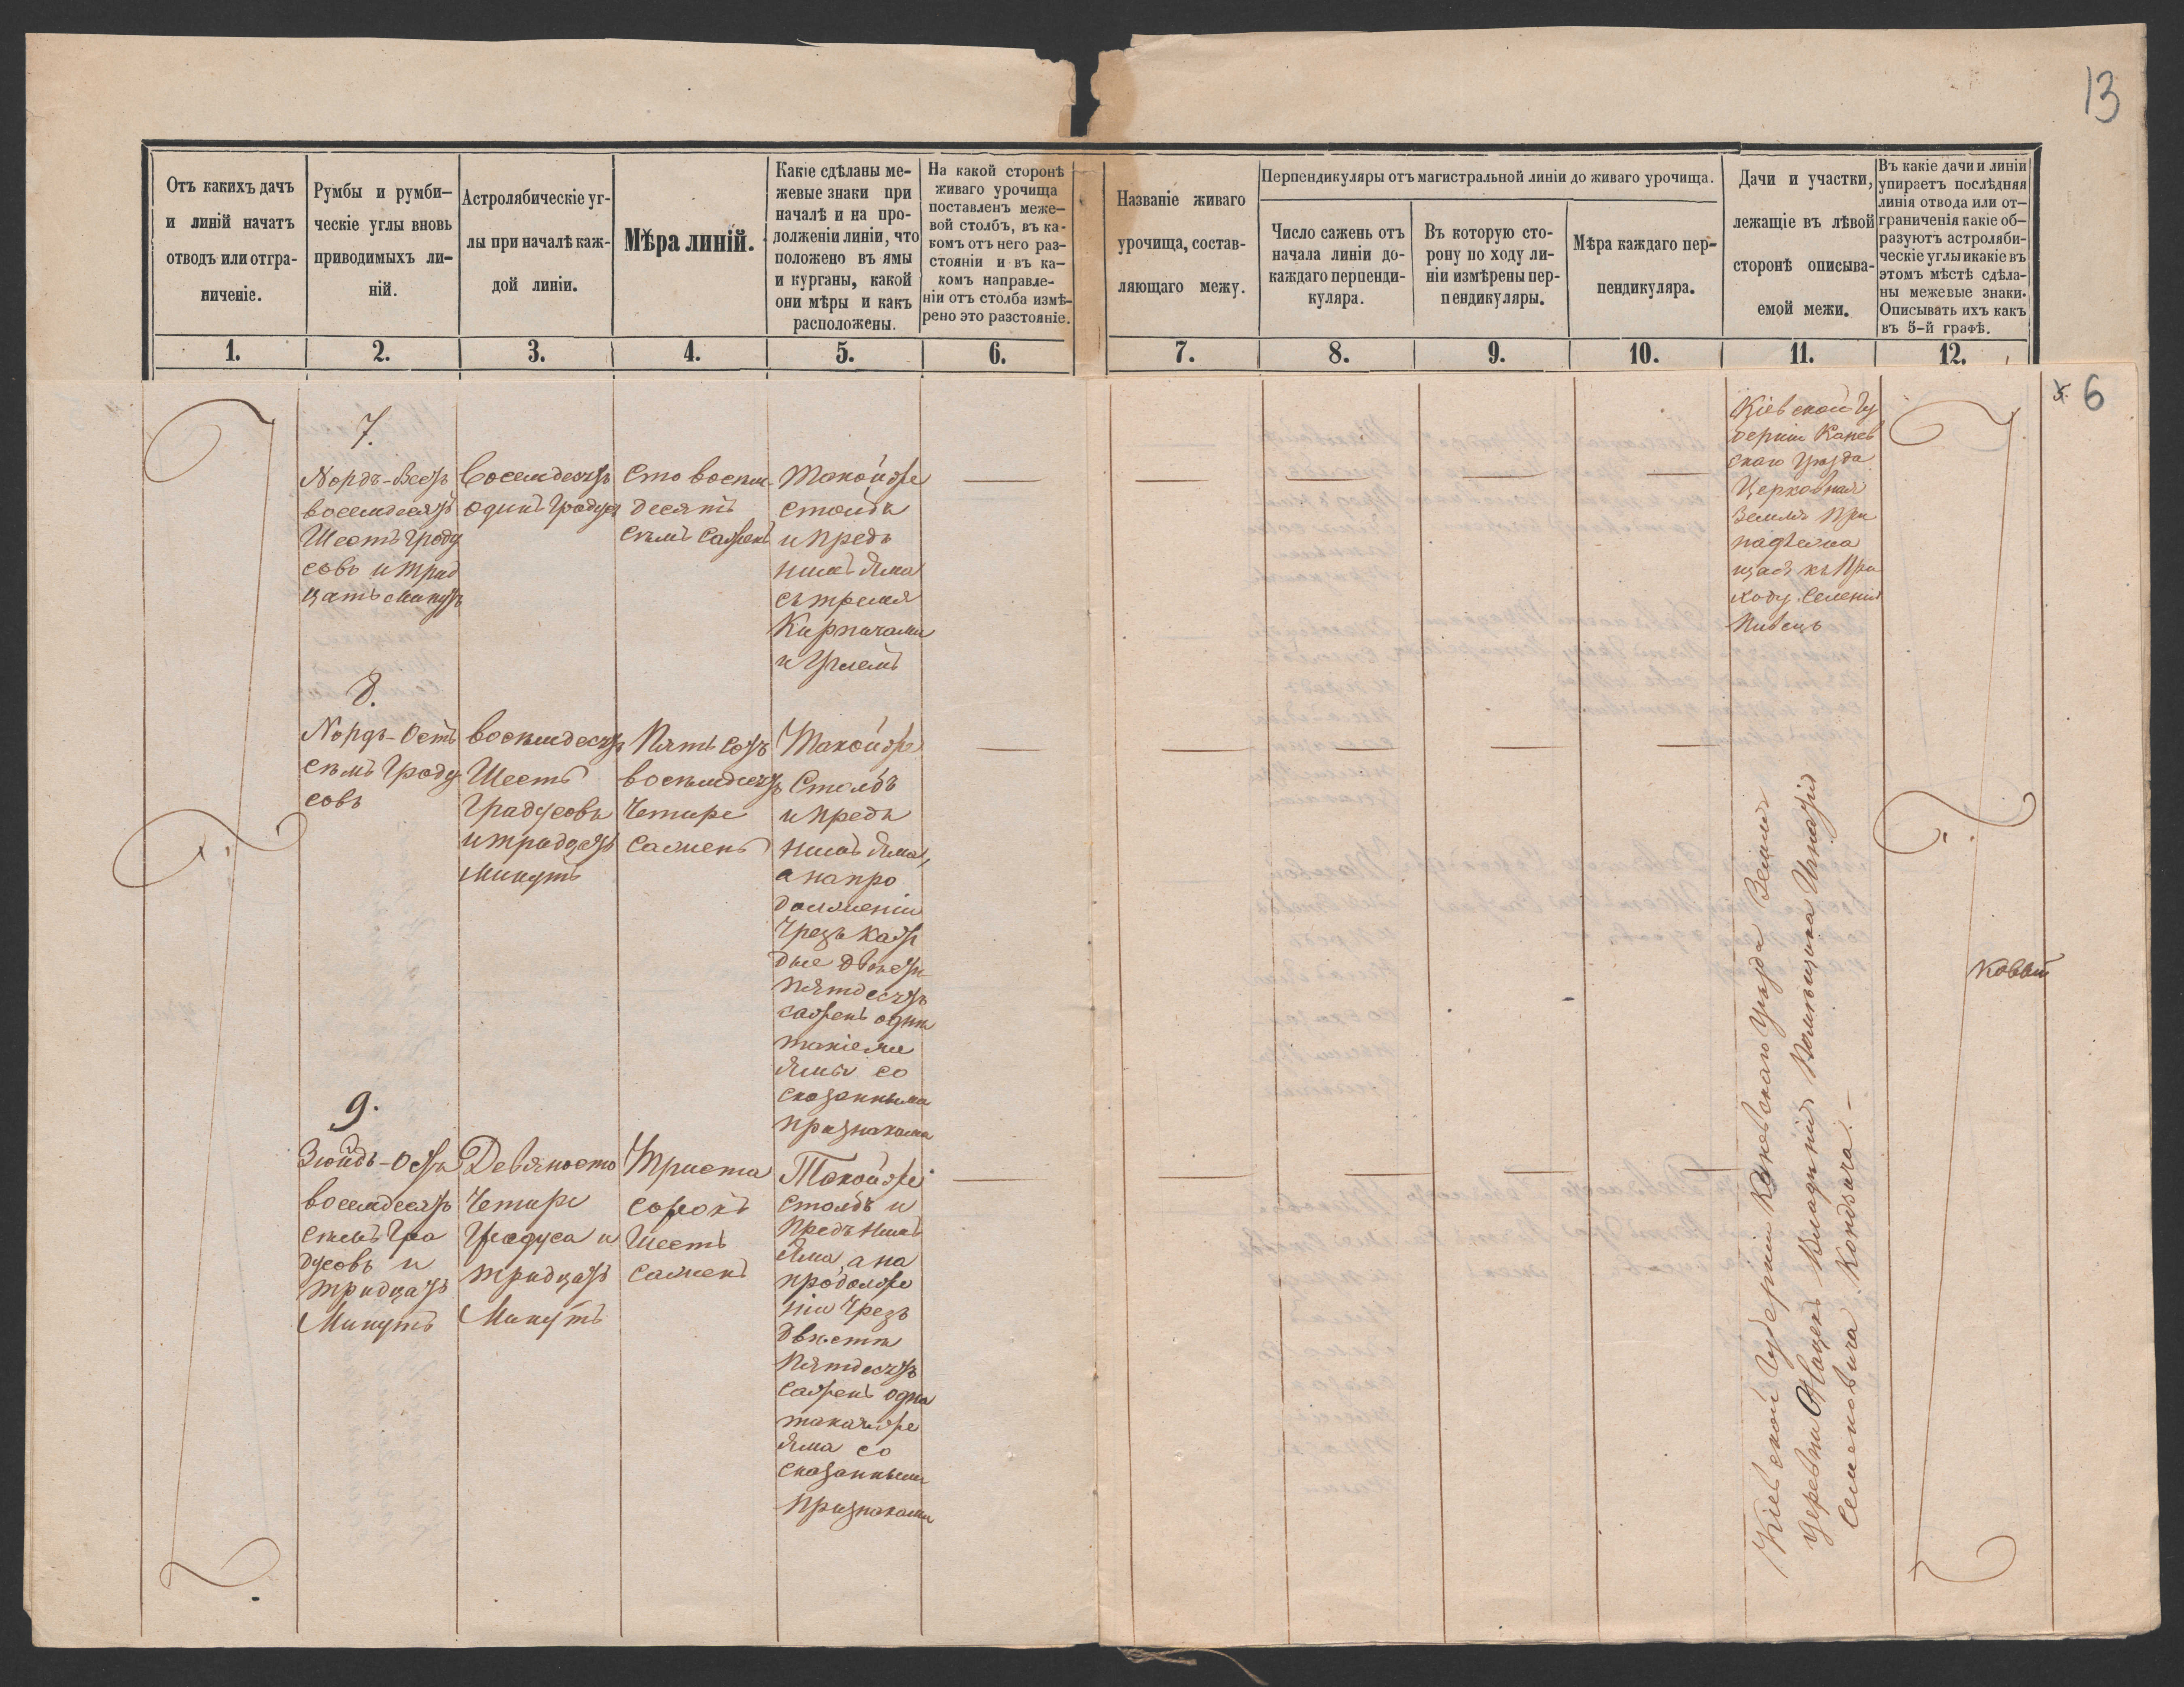 13
Отъ какихъ дачъ
и линій начатъ
отводъ или отгра-
ниченіе.
Румбы и румби-
ческіе углы вновь
приводимыхъ ли-
ній.
Астролябическіе уг-
лы при началѣ каж-
дой линіи.
Мѣра линій.
Какіе сдѣланы ме-
жевые знаки при
началѣ и на про-
долженіи линіи, что
положено въ ямы
и курганы, какой
они мѣры и какъ
расположены.
На какой сторонѣ
живаго урочища
поставленъ меже-
вой столбъ, въ ка-
комъ отъ него раз-
стояніи и въ ка-
комъ направле-
ніи отъ столба измѣ-
рено это разстояніе.
Названіе живаго
урочища, состав-
ляющаго межу.
Перпендикуляры отъ магистральной линіи до живаго урочища.
Число сажень отъ
начала линіи до-
каждаго перпенди-
куляра.
Въ которую сто-
рону по ходу ли-
ніи измѣрены пер-
пендикуляры.
Мѣра каждаго пер-
пендикуляра.
Дачи и участки,
лежащіе въ лѣвой
сторонѣ описыва-
емой межи.
Въ какіе дачи и линіи
упираетъ послѣдняя
линія отвода или от-
граниченія какіе об-
разуютъ астроляби-
ческіе углы и какіе въ
этомъ мѣстѣ сдѣла-
ны межевые знаки.
Описывать ихъ какъ
въ 5-й графѣ.
1. 2. 3. 4. 5. 6. 7. 8. 9. 10. 11. 12.
6
7.
Нордъ-Вестъ
восемдесятъ
Шесть Граду
совъ и трид
цать минутъ
Восемдесятъ
одинъ Градусъ
Сто восем-
десятъ
семь Сажень
Такой же
столбъ
и предъ
нимъ Яма
съ тремя
Кирпичами
и Углемъ
Кіевской Гу
берніи Канев
скаго Уѣзда
Церковная
Земля при
надлежа
щая къ При
ходу Селенія
Пивецъ
8.
Нордъ-Остъ
семь Граду
совъ
восемьдесятъ
Шесть
Градусовъ
и тридцать
минутъ
Пять сотъ
восемьдесятъ
Четыре
Сажень
Такой же
Столбъ
и предъ
нимъ Яма,
а на про
долженіи
Чрезъ каж
дые двѣсти
пятдесятъ
сажень одни
такіе же
Ямы со
сказанными
признаками
9.
Зюйдъ-Остъ
восемдесятъ
семь Гра
дусовъ и
тридцать
Минутъ
Девяносто
Четыре
Градуса и
тридцать
Минутъ
Триста
сорокъ
Шесть
сажень
Такой же
столбъ и
предъ нимъ
Яма, а на
продолже
ніи Чрезъ
двѣсти
пятдесятъ
сажень одна
такая же
Яма со
сказанными
признаками
Кіевской Губерніи Каневскаго Уѣзда Земля
Деревни Владѣнія Помѣщика Игнатія
Семеновича